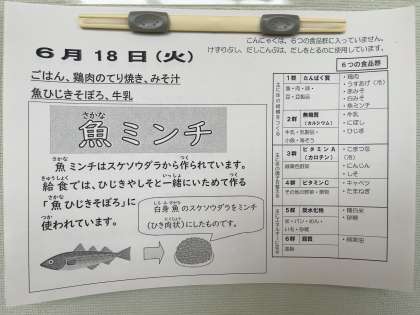 こんにゃくは、6つの食品群に入っていません。
けずりぶし、だしこんぶは、だしをとるのに使用しています。
6月18日(火)
ごはん、鶏肉のてり焼き、みそ汁
魚ひじきそぼろ、牛乳
さかな
魚ミンチ
さかな つく
魚ミンチはスケソウダラから作られています。
きゅうしょく いっしょ つく
給食では、ひじきやしそと一緒にいためて作る
さかな
「魚ひじきそぼろ」に
つか
使われています。
しろみざかな
白身魚のスケソウダラをミンチ
(ひき肉状)にしたものです。
6つの食品群
1群 たんぱく質
魚・肉・卵・
豆・豆製品
・鶏肉
・うすあげ(冷)
・赤みそ
・白みそ
・魚ミンチ
2群 無機質
(カルシウム)
牛乳・乳製品・
小魚・海そう
・牛乳
・にぼし
・ひじき
3群 ビタミンA
(カロテン)
緑黄色野菜
・こまつな
(冷)
・にんじん
・しそ
4群 ビタミンC
その他の野菜・果物
・キャベツ
・たまねぎ
5群 炭水化物
米・パン・めん・
いも・砂糖
・精白米
・砂糖
6群 脂質
油脂
・綿実油